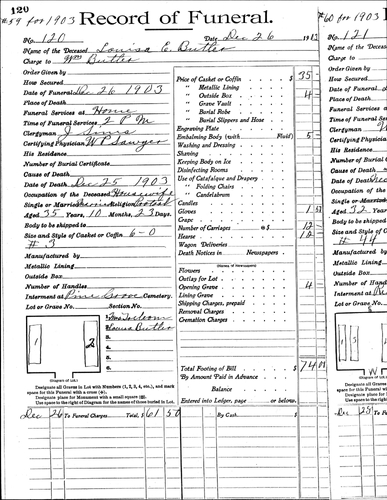 120
#59 for 1903 Record of Funeral. #60 for 1903
No. 120 Date, Dec 26 190
Name of the Deceased Louisa E. Butler
Charge to Wm Butler
Order Given by
How Secured
Date of Funeral Dec 26 1903
Place of Death
Funeral Services at Home
Time of Funeral Services 2 P M
Clergyman J Sims
Certifying Physician W P Sawyer
His Residence
Number of Burial Certificate
Cause of Death
Date of Death Dec 25 1903
Occupation of the Deceased Housewife
Single or Married Religion
Aged 35 Years, 10 Months, 23 Days
Body to be shipped to
Size and Style of Casket or Coffin 6-0
# 3
Manufactured by
Metallic Lining
Outside Box
Number of Handles
Interment at Pine Grove Cemetery.
Lot or Grave No. Section No.
1
2
Louisa Butler
(Diagram of Lot.)
Designate all Graves in Lot with Numbers (1, 2, 3, 4, etc.), and mark
space for this Funeral with a cross (x).
Designate place for Monument with a small square
Use space to the right of Diagram for the names of those buried in Lot.
Price of Casket or Coffin $ 35
" Metallic Lining
" Outside Box 4
" Grave Vault
" Burial Robe
" Burial Slippers and Hose
Engraving Plate
Embalming Body (with Fluid) 5
Washing and Dressing
Shaving
Keeping Body on Ice
Disinfecting Rooms
Use of Catafalque and Drapery
" Folding Chairs
" Candelabrum
Candles
Gloves 1
Crape
Number of Carriages @$ 12
Hearse 12
Wagon Deliveries
Death Notices in Newspapers
Flowers
Outlay for Lot
Opening Grave 4
Lining Grave
Shipping Charges, prepaid
Removal Charges
Cremation Charges
Total Footing of Bill $ 74
By Amount Paid in Advance
Balance
Entered into Ledger, page or below.
Dec 26 To Funeral Charges Total, $ 61 50 By Cash $
No. 121
Name of the
Charge to
Order Given
How Secured
Date of Funeral
Place of Death
Funeral Serv
Time of Fune
Clergyman
Certifying Ph
His Residence
Number of Bu
Cause of Deat
Date of Death
Occupation of
Single or
Aged 32
Body to be shi
Size and Style
# 44
Manufactured
Metallic Linin
Outside Box
Number of Ha
Interment at
Lot or Grave
W
(Diagram of Lot
Designate all
space for this
Designate pla
Use space to the
Dec 25